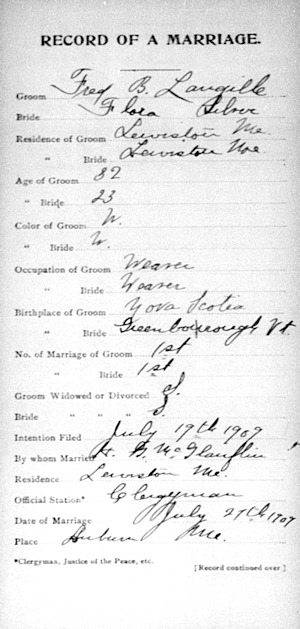 RECORD OF A MARRIAGE.
Groom Fred B. Langille
Bride Flora
Residence of Groom Lewiston Me.
" Bride Lewiston Me
Age of Groom 32
" Bride 23
Color of Groom W.
" Bride W.
Occupation of Groom Weaver
" Bride Weaver
Birthplace of Groom Nova Scotia
" Bride Vt
No. of Marriage of Groom 1st
" Bride 1st
Groom Widowed or Divorced S.
Bride " " S.
Intention Filed July 19th 1907
By whom Married McGlauflin
Residence Lewiston Me.
Official Station* Clergyman
Date of Marriage July 27th 1907
Place Auburn Me.
*Clergyman, Justice of the Peace, etc.
[Record contioned over]